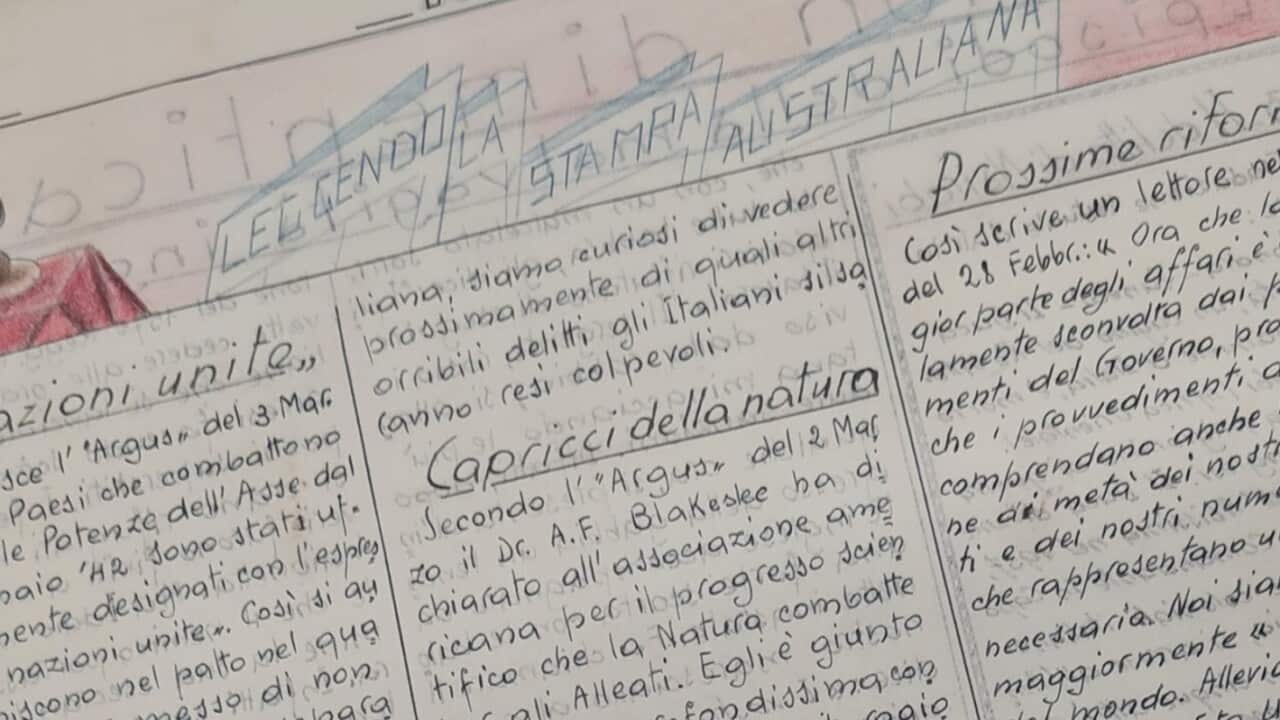 LEGGENDO LA STAMPA AUSTRALIANA
azioni unite„
sce l'"Argus„ del 3 Mar.
Paesi che combattono
le Potenze dell'Asse dal
naio '42 sono stati uf-
mente designati con l'espres
nazioni unite„. Così si au
iscono nel patto nel qua
messo di non
liana, siamo curiosi di vedere
prossimamente di quali altri
orribili delitti gli Italiani si sa
ranno resi colpevoli.
Capricci della natura
Secondo l'"Argus„ del 2 Mar
zo il Dr. A.F. Blakeslee ha di
chiarato all'associazione ame
ricana per il progresso scien
tifico che la Natura combatte
gli Alleati. Egli è giunto
fondissima con
Prossime rifor
Così scrive un lettore ne
del 28 Febbr.: « Ora che la
gior parte degli affari è
lamente sconvolta dai p
menti del Governo, pro
che i provvedimenti a
comprendano anche
ne di metà dei nostr
ti e dei nostri num
che rappresentano u
necessaria. Noi sia
maggiormente «
mondo. Allevia